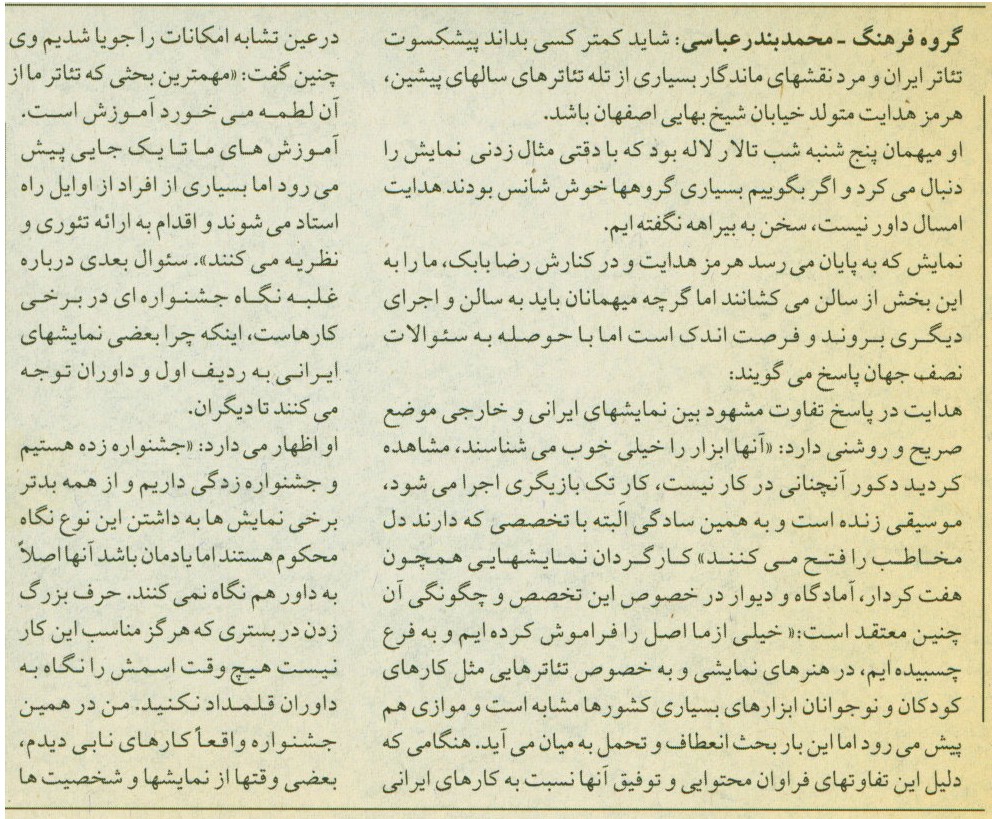 گروه فرهنگ - محمدبندرعباسی: شاید کمتر کسی بداند پیشکسوت
تئاتر ایران و مرد نقشهای ماندگار بسیاری از تله تئاترهای سالهای پیشین،
هرمز هدایت متولد خیابان شیخ بهایی اصفهان باشد.
او میهمان پنج شنبه شب تالار لاله بود که با دقتی مثال زدنی نمایش را
دنبال می کرد و اگر بگوییم بسیاری گروهها خوش شانس بودند هدایت
امسال داور نیست، سخن به بیراهه نگفته ایم.
نمایش که به پایان می رسد هرمز هدایت و در کنارش رضا بابک، ما را به
این بخش از سالن می کشانند اما گرچه میهمانان باید به سالن و اجرای
دیگری بروند و فرصت اندک است اما با حوصله به سئوالات
نصف جهان پاسخ می گویند:
هدایت در پاسخ تفاوت مشهود بین نمایشهای ایرانی و خارجی موضع
صریح و روشنی دارد: «آنها ابزار را خیلی خوب می شناسند، مشاهده
کردید دکور آنچنانی در کار نیست، کار تک بازیگری اجرا می شود،
موسیقی زنده است و به همین سادگی البته با تخصصی که دارند دل
مخاطب را فتح می کنند» کارگردان نمایشهایی همچون
هفت کردار، آمادگاه و دیوار در خصوص این تخصص و چگونگی آن
چنین معتقد است:« خیلی ازما اصل را فراموش کرده ایم و به فرع
چسبیده ایم، در هنرهای نمایشی و به خصوص تئاترهایی مثل کارهای
کودکان و نوجوانان ابزارهای بسیاری کشورها مشابه است و موازی هم
پیش می رود اما این بار بحث انعطاف و تحمل به میان می آید. هنگامی که
دلیل این تفاوتهای فراوان محتوایی و توفیق آنها نسبت به کارهای ایرانی
درعین تشابه امکانات را جویا شدیم وی
چنین گفت: «مهمترین بحثی که تئاتر ما از
آن لطمه می خورد آموزش است.
آموزش های ما تا یک جایی پیش
می رود اما بسیاری از افراد از اوایل راه
استاد می شوند و اقدام به ارائه تئوری و
نظریه می کنند». سئوال بعدی درباره
غلبه نگاه جشنواره ای در برخی
کارهاست، اینکه چرا بعضی نمایشهای
ایرانی به ردیف اول و داوران توجه
می کنند تا دیگران.
او اظهار می دارد: «جشنواره زده هستیم
و جشنواره زدگی داریم و از همه بدتر
برخی نمایش ها به داشتن این نوع نگاه
محکوم هستند اما یادمان باشد آنها اصلاً
به داور هم نگاه نمی کنند. حرف بزرگ
زدن در بستری که هرگز مناسب این کار
نیست هیچ وقت اسمش را نگاه به
داوران قلمداد نکنید. من در همین
جشنواره واقعاً کارهای نابی دیدم،
بعضی وقتها از نمایشها و شخصیت ها